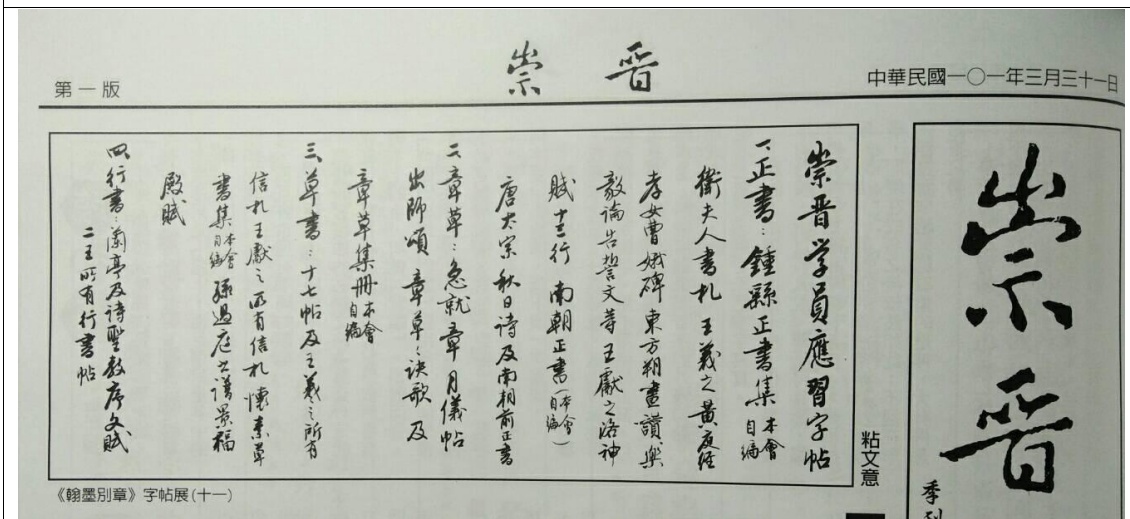 第一版
崇晋
中華民國一〇一年三月三十一日
崇晋学員應習字帖
一、正書：鍾繇正書集 本會自編
衛夫人書札 王羲之黃庭経
孝女曹娥碑 東方朔畫讃 樂
毅論 告誓文等 王獻之洛神
賦十三行 南朝正書（本會自編）
唐太宗秋日詩及南朝前正書
二、章草：急就章 月儀帖
出師頌 章草々訣歌 及
章草集冊 本會自編
三、草書：十七帖及王羲之所有
信札 王獻之所有信札 懷素草
書集 本會自編 孫過庭書譜 景福
殿賦
四、行書：蘭亭及詩 聖教序 文賦
二王所有行書帖
《翰墨別章》字帖展(十一)
粘文意
崇晋
季刊